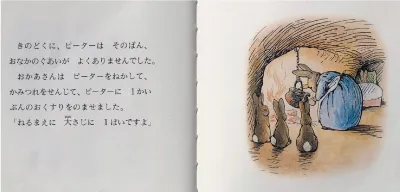 きのどくに、ピーターは そのばん、
おなかのぐあいが よくありませんでした。
おかあさんは ピーターをねかして、
かみつれをせんじて、ピーターに 1かい
ぶんのおくすりをのませました。
「ねるまえに 大さじに 1ぱいですよ」